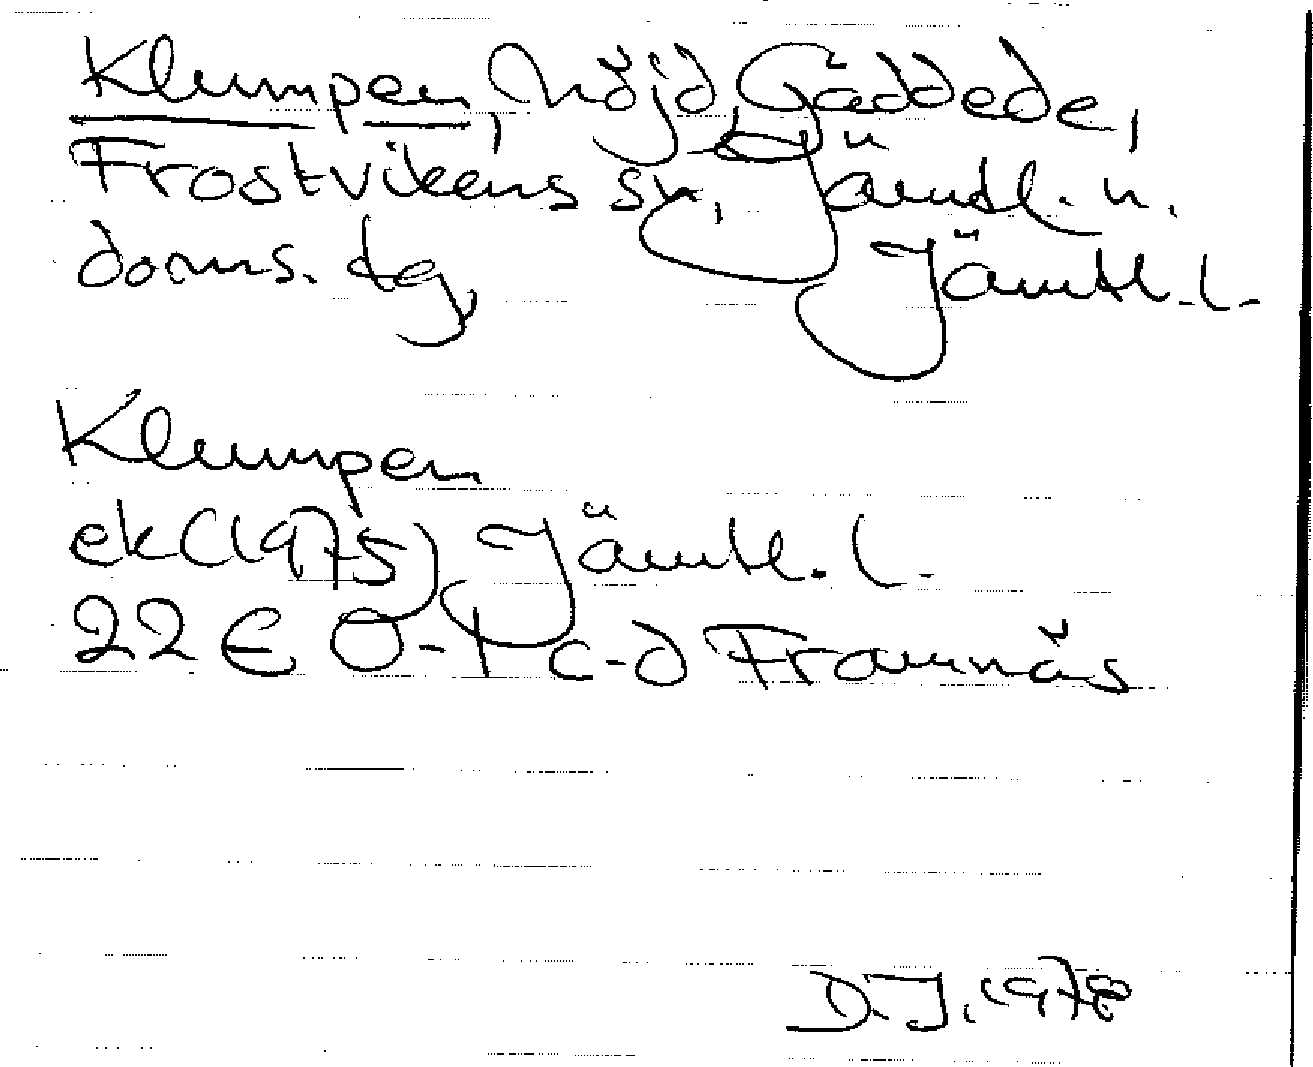 Klumpen, höjd, Gäddede,
Frostvikens sn, Jämtl. n.
doms. tg, Jämtl. l.
Klumpen
ek (1975) Jämtl. l.
22 E 0-1 c-d Framnäs
D.J. 1978